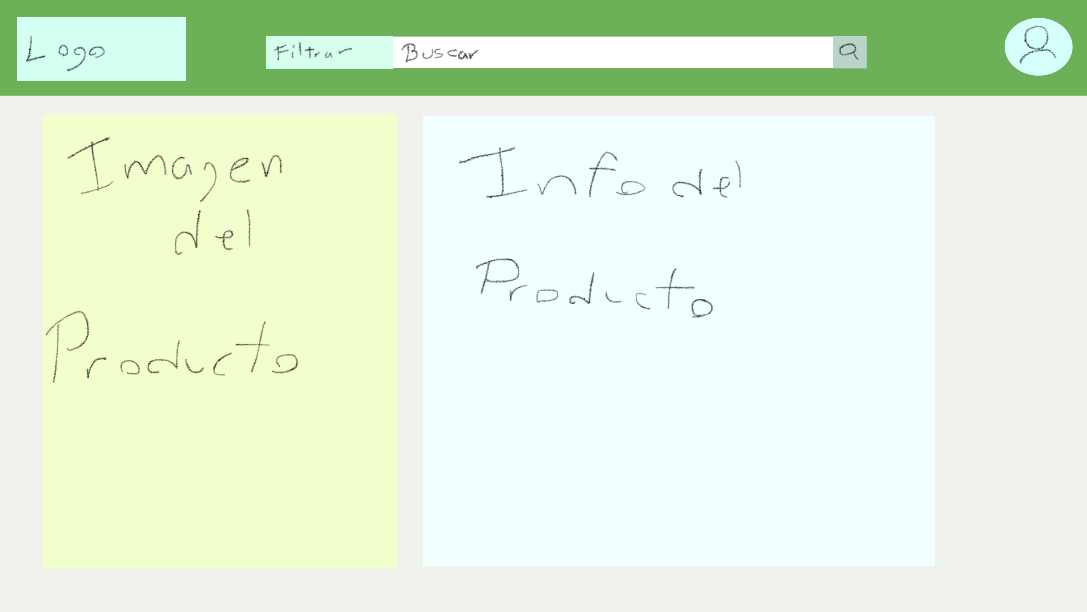 Logo
Filtrar
Buscar
Imagen
del
Producto
Info del
Producto